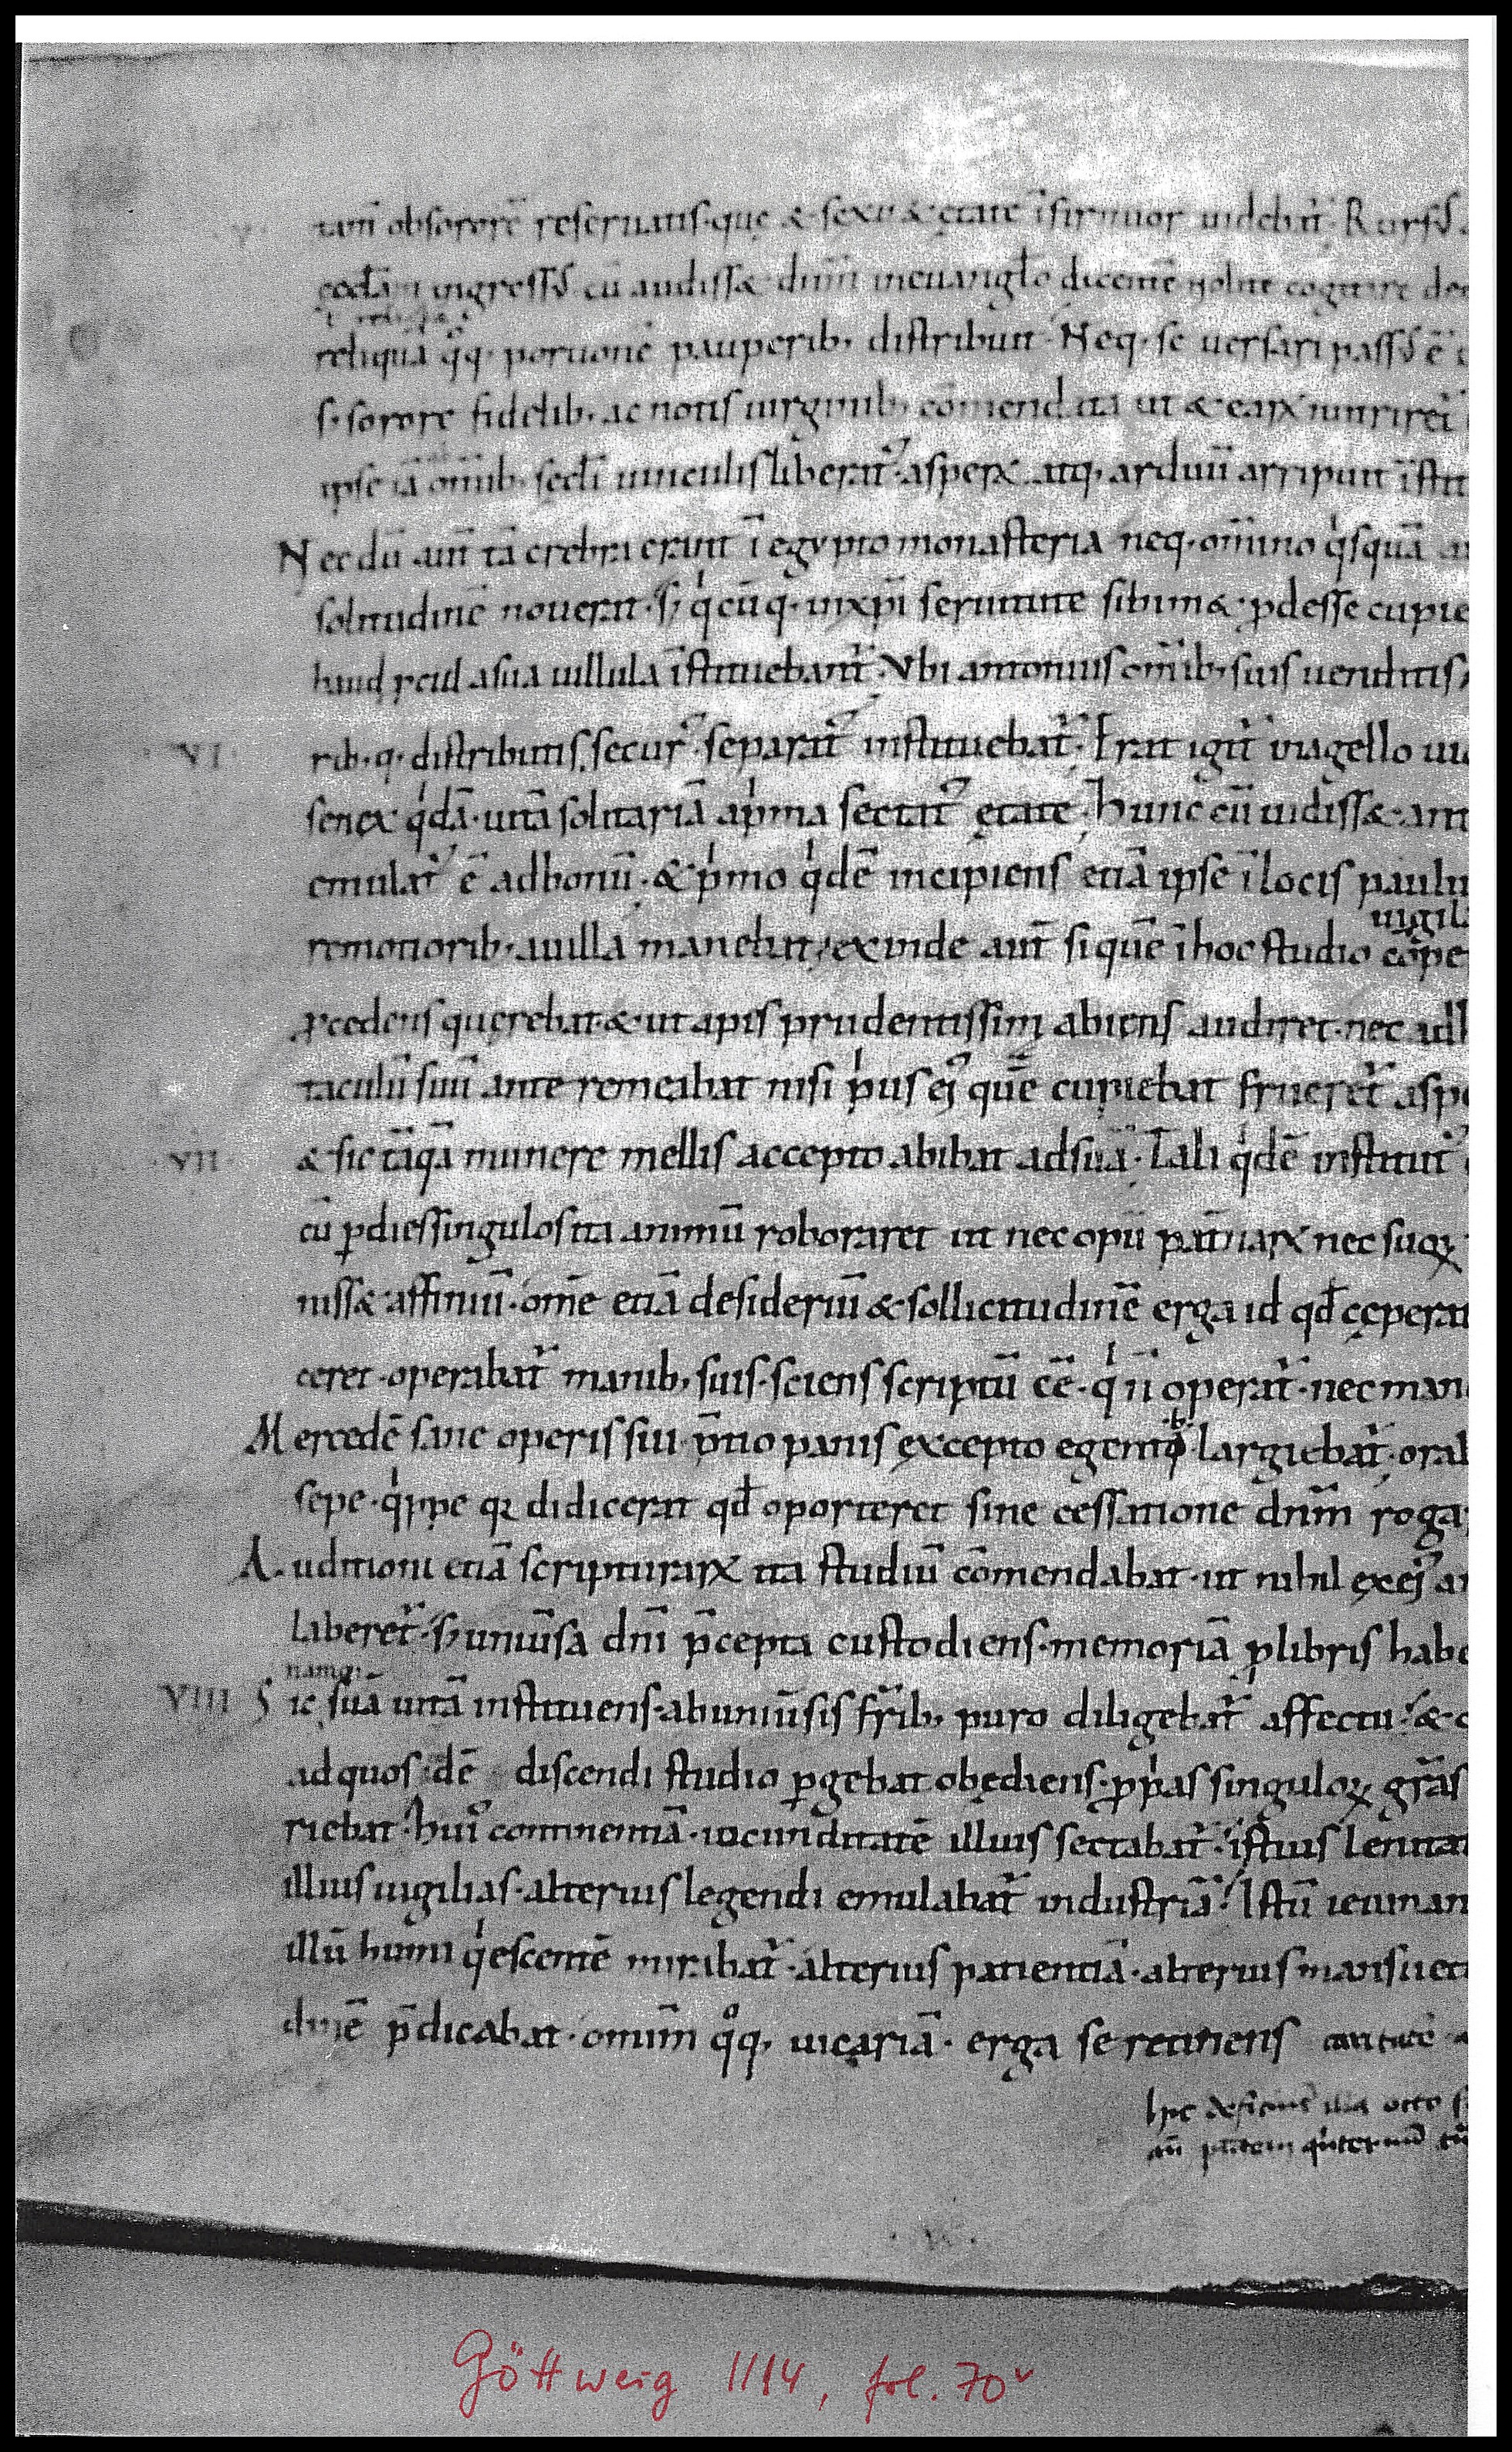 tam̄ obsororē reseruatis. que & sexu & ętate īfirmior uidebat̄. Rursꝰ
ingressꝰ cū audiss& dn̄m ineuangl̄o dicentē nolite cogitare de
reliquā q̊q. portionē pauperib; distribuit. Neq. se uersari passꝰ ē
s. sorore fidelib; ac notis uirginib; cōmendata ut & earꝝ nutriret̄
ipse iā om̄ib; sectī uinculis liberatꝰ. asperꝝ atq. arduū arripuit īstit
Nec dū aut̄ tā crebra erant ī egypto monasteria neq. om̄ino qͥsquā
solitudinē nouerat. Sꝫ qͥcūq. inxp̄i seruitute sibim&. ꝓdesse cupie
haud ꝓcul asua uillula īstituebant̄. Vbi antonius om̄ib; suis uenditis
VI rib. q. distributis. securꝰ. separatꝰ instituebat̄. Erat igit̄ inagello uic
senex qͥdā. uitā solitariā apͥma sectatꝰ ętate. Hunc cū uidiss&. ant
emulatꝰ ē adbonū. & pͥmo qͥdē incipiens etiā ipse ī locis paulu
uigil
remotiorib. auilla manebat. exinde aut̄ si quē ī hoc studio cōpe
ꝓcedens querebat. & ut apis prudentissima abiens audiret. nec adh
taculū suū ante remeabat nisi pͥus eiꝰ quē cupiebat frueret̄ aspe
VII & sic tāqā munere mellis accepto abibat adsua. Tali qͥdē institutꝰ
cū ꝑdies singulos ita animū roboraret ut nec opū pat̄narꝝ nec suoꝝ
niss& affiniū. om̄e etiā desideriū & sollicitudinē erga id qd̄ cęperat
ceret. operabat̄ manib; suis. sciens scriptū ēē. qͥ n̄ operat̄. nec man
Mercedē sane operis sui p̄tio panis excepto egentiƀ. largiebat̄. orab
sepe. qͥppe qꝛ didicerat qd̄ oporteret sine cessatione dn̄m roga
Auditioni etiā scripturarꝝ ita studiū cōmendabat. ut nihil ex eiꝰ an
laberet̄. Sꝫ uniūsa dn̄i p̄cepta custodiens. memoriā ꝓlibris habe
namq.
VIII Sic suā uitā instituens. abuniūsis fr̄ib; puro diligebat̄ affectu. &
adquos dē discendi studio ꝑgebat obędiens. ꝓpͥas singuloꝝ grās
riebat. huiꝰ continentiā. iocunditatē illius sectabat̄. istius lenitat
illius uigilias. alterius legendi emulabat̄ industriā. Istū ieiunan
illū humi qͥescentē mirabat̄. alterius patientiā. alterius mansuetu
dinē p̄dicabat. omniū q̊q; uicariā. erga se retinens
hic